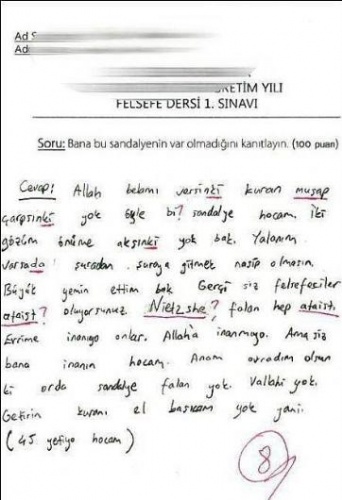 Ad S
Ad
RETİM YILI
FELSEFE DERSİ 1. SINAVI
Soru: Bana bu sandalyenin var olmadığını kanıtlayın. (100 puan)
Cevap: Allah belamı versinki kuran muşap
çarpsınki yok öyle bi? sandalye hocam. İki
gözüm önüme aksınki yok bak. Yalanım
varsada suradan suraya gitmek nasip olmasın.
Büyük yemin ettim bak Gerçi siz felsefeciler
ataist? oluyorsunuz. Nietzshe? falan hep ataist.
Evrime inanıyo onlar. Allah'a inanmıyo. Ama siz
bana inanın hocam. Anam avradım olsun
ki orda sandalye falan yok. Vallahi yok.
Getirin kuranı el basıcam yok yani.
(45 yetiyo hocam)
8